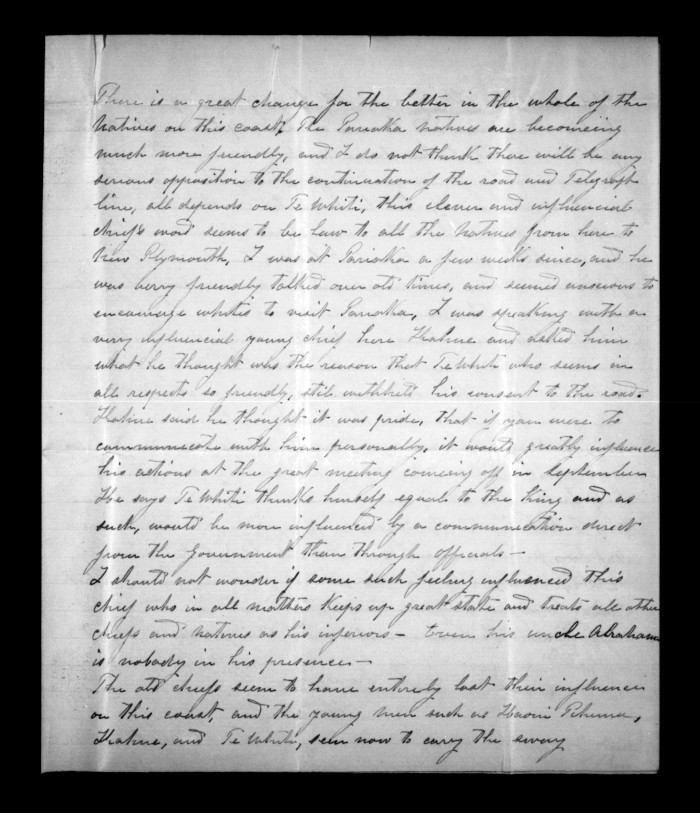 There is a great change for the better in the whole of the
Natives on this coast, The Pariaka Natives are becomeing
much more friendly, and I do not think there will be any
serious opposition to the continuation of the road and Telegraph
line, all depends on Te Whiti, this clever and influencial
chiefs word seems to be law to all the Natives from here to
New Plymouth, I was at Pariaka a few weeks since, and he
was very friendly talked over old times, and seemed anxious to
encourage whites to visit Pariaka, I was speaking with a
very influencial young chief here and asked him
what he thought was the reason that Te Whiti who seems in
all respects so friendly, still withhelds his consent to the road.
said he thought it was pride, that if you were to
communicate with him personally, it would greatly influence
his actions at the great meeting comeing off in September
He says Te Whiti thinks himself equal to the King and as
such, would be more influenced by a communication direct
from the Government than through officials —
I should not wonder if some such feeling influenced this
chief who in all matters keeps up great state and treats all other
chiefs and natives as his inferiors — Even his uncle Abraham
is nobody in his presence —
The old chiefs seem to have entirely lost their influence
on this coast, and the young men such as Hone Pihama,
and Te Whiti, seem now to carry the sway